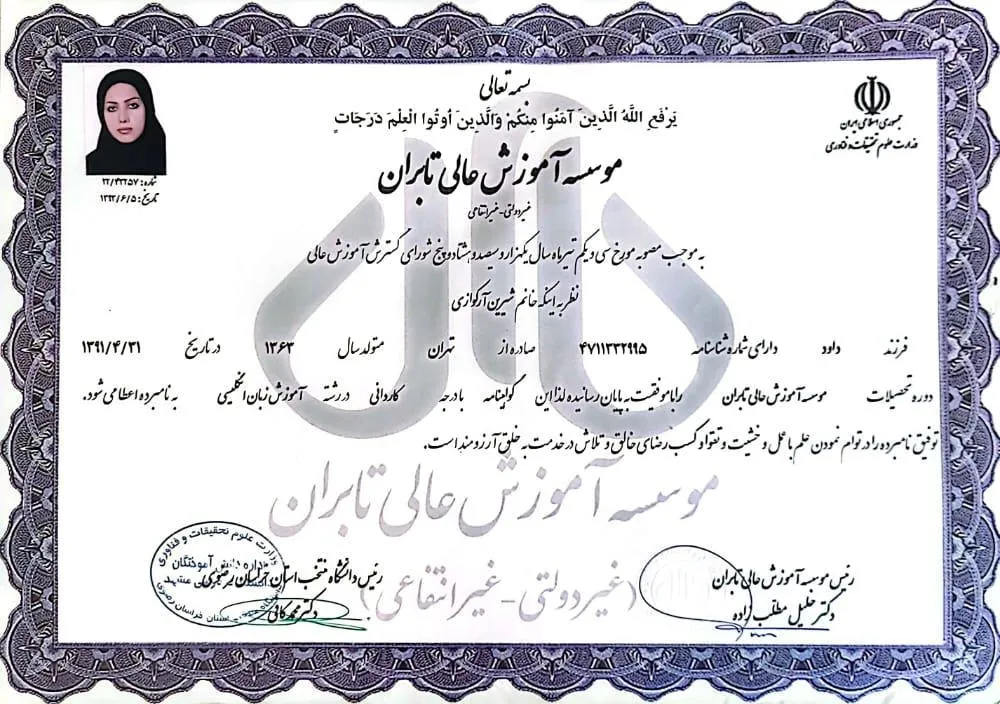 بسمه تعالی
یَرْفَعِ اللَّهُ الَّذِینَ آمَنُوا مِنْکُمْ وَالَّذِینَ أُوتُوا الْعِلْمَ دَرَجَاتٍ
جمهوری اسلامی ایران
وزارت علوم تحقیقات و فناوری
موسسه آموزش عالی تابران
غیردولتی-غیرانتفاعی
شماره: ۲۲/۴۲۲۵۷
تاریخ: ۱۳۹۲/۶/۵
به موجب مصوبه مورخ سی و یکم تیرماه سال یکهزار و سیصد و هشتاد و پنج شورای گسترش آموزش عالی
نظر به اینکه خانم شیرین آرکوازی
فرزند داود دارای شماره شناسنامه ۴۷۱۱۳۳۲۹۹۵ صادره از تهران متولد سال ۱۳۶۳ در تاریخ ۱۳۹۱/۴/۳۱
دوره تحصیلات موسسه آموزش عالی تابران را با موفقیت به پایان رسانیده لذا این گواهینامه با درجه کاردانی در رشته آموزش زبان انگلیسی به نامبرده اعطا می شود.
توفیق نامبرده را در توام نمودن علم با عمل و خشیت و تقوا و کسب رضای خالق و تلاش در خدمت به خلق آرزومند است.
موسسه آموزش عالی تابران
(غیردولتی-غیرانتفاعی)
رئیس موسسه آموزش عالی تابران
دکتر خلیل مطلب زاده
رئیس دانشگاه منتخب استان خراسان رضوی
دکتر محمد کافی
وزارت علوم تحقیقات و فناوری
اداره دانش آموختگان
مشهد
خراسان رضوی